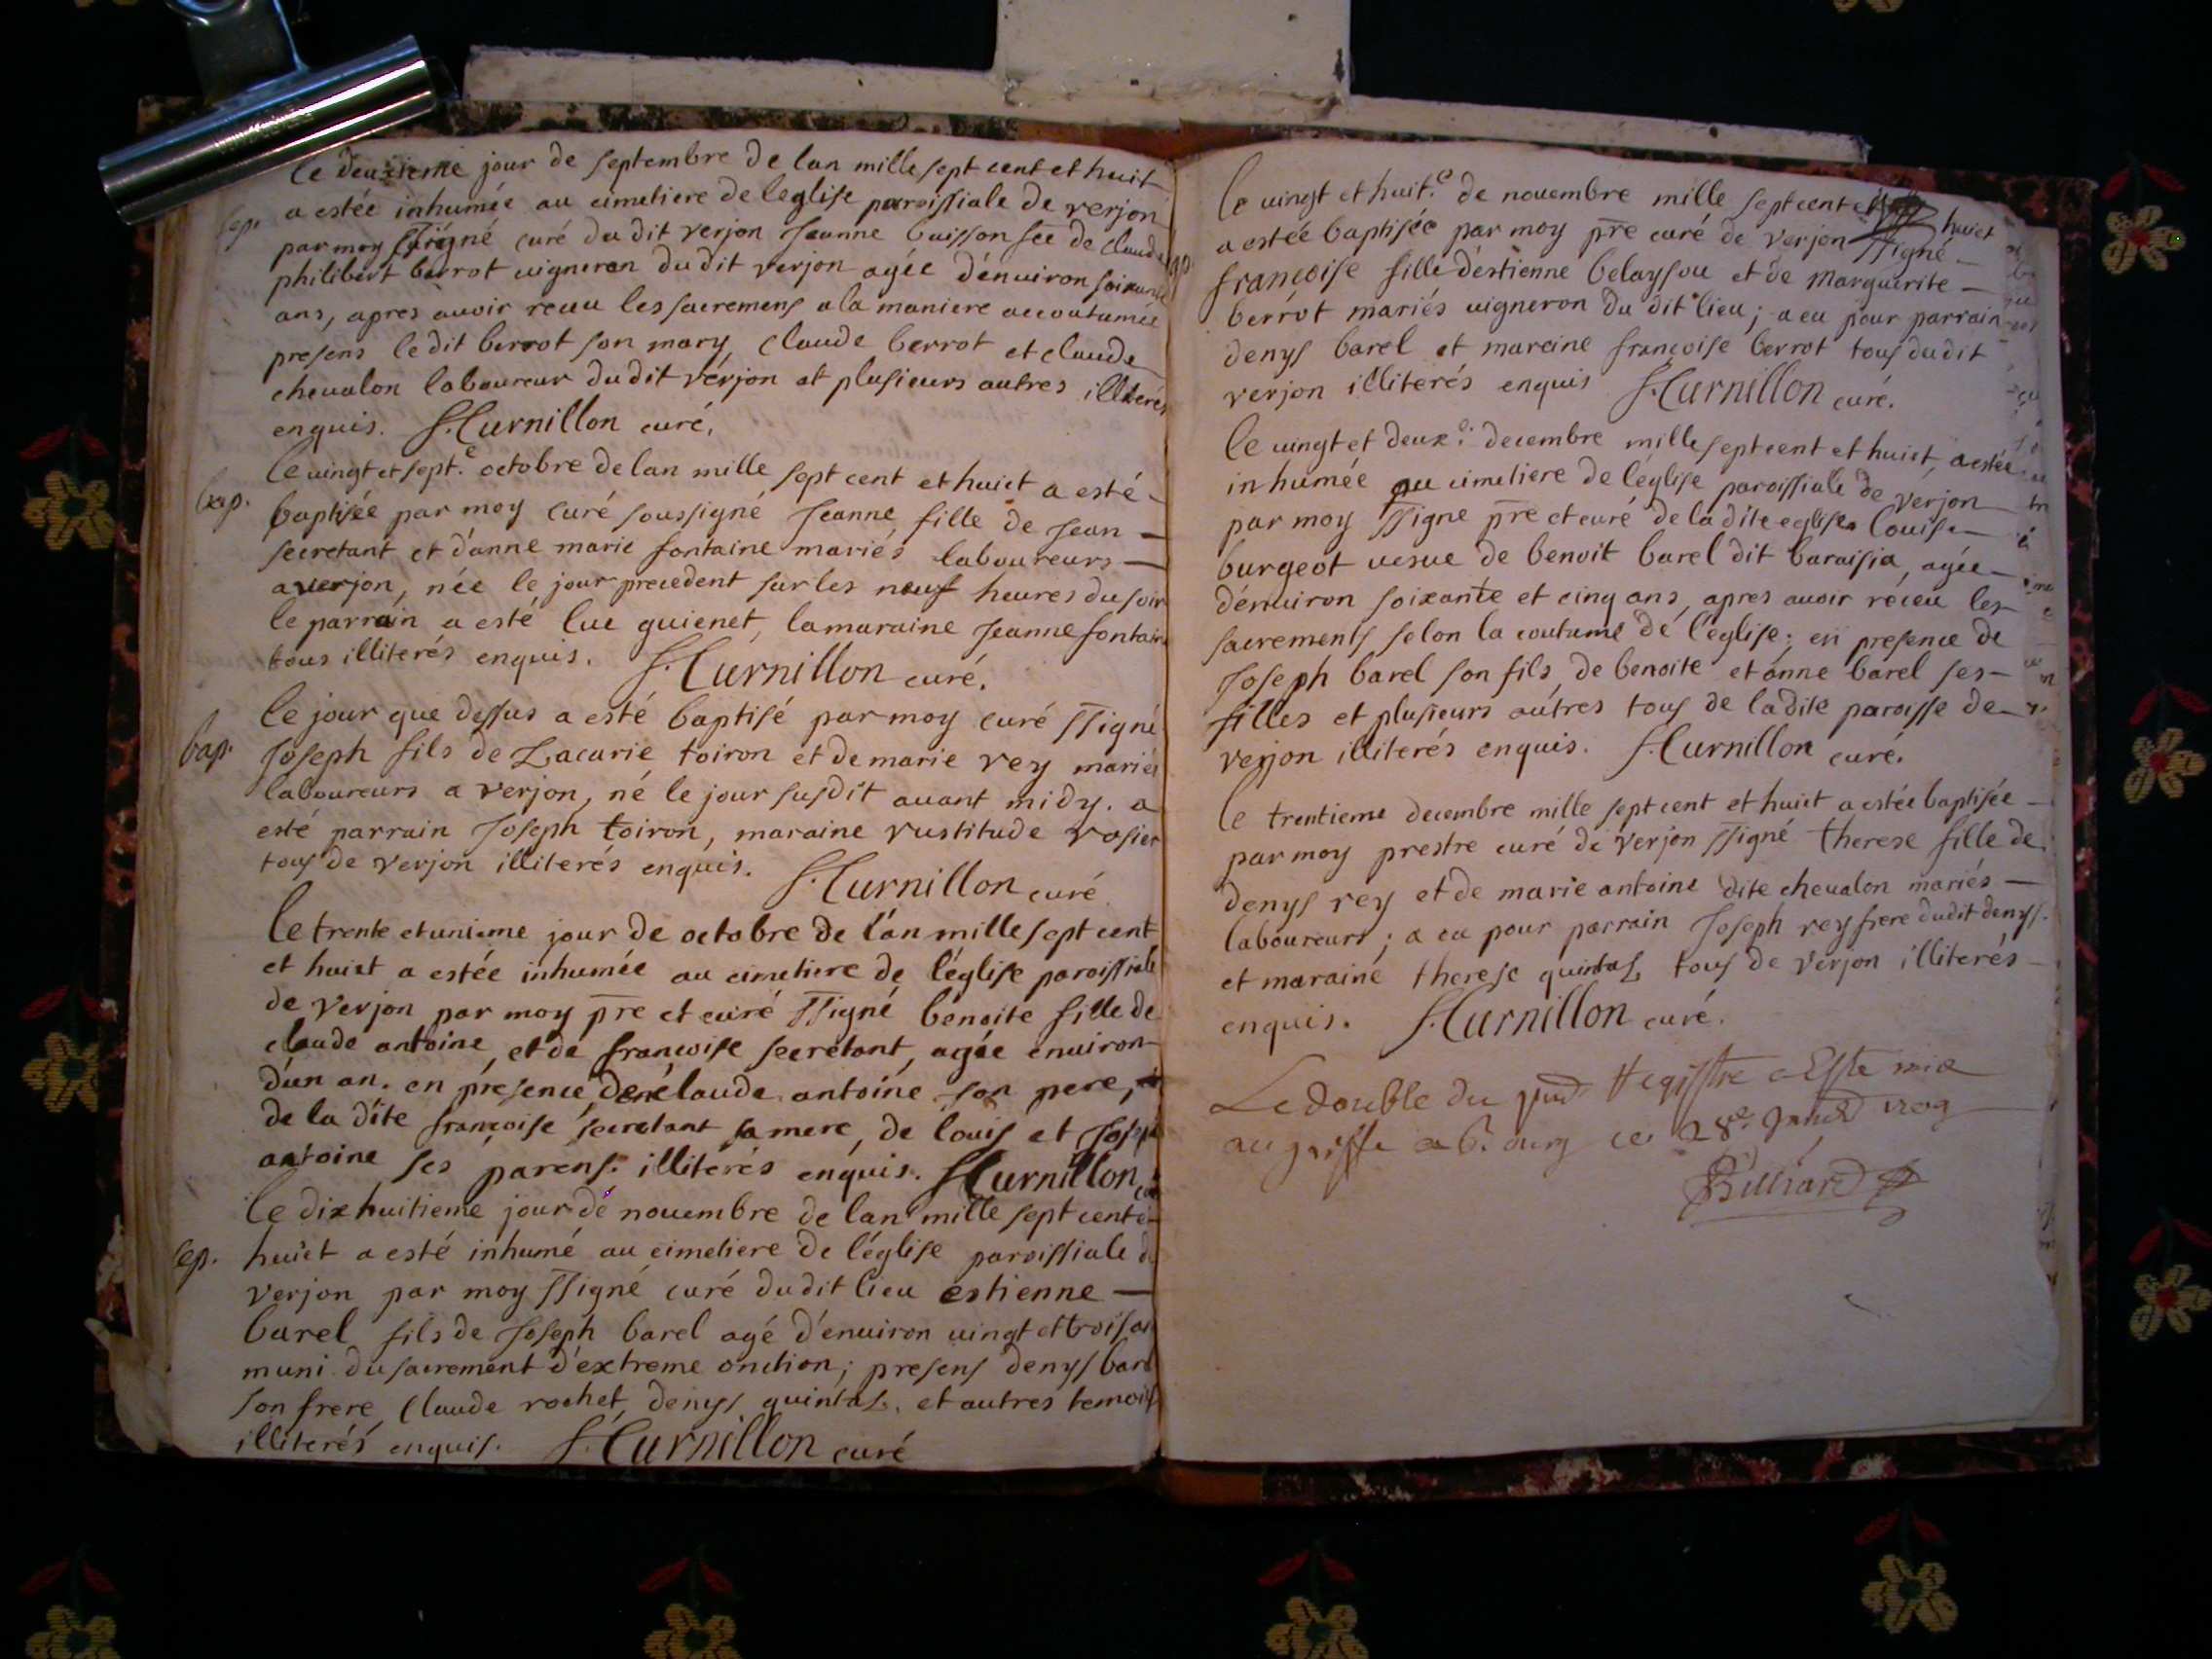 le deuxieme jour de septembre de lan mille sept cent et huit
sep. a estée inhumée au cimetiere de leglise paroissiale de verjon
par moy ssigné curé du dit verjon Jeanne buisson fee de claude
philibert berrot uigneron du dit verjon agée d'enuiron soixante
ans, apres auoir receu les sacremens a la maniere accoutumée
presens le dit berrot son mary, claude berrot et claude
cheualon laboureur du dit verjon et plusieurs autres illiterés
enquis. f. Curnillon curé.
le uingt et sept.e octobre de lan mille sept cent et huict a esté
bap. baptisée par moy curé soussigné Jeanne fille de Jean
secretant et d'anne marie fontaine mariés laboureurs
a verjon, née le jour precedent sur les neuf heures du soir
le parrain a esté luc guienet, la maraine Jeanne fontaine
tous illiterés enquis. f. Curnillon curé.
le jour que dessus a esté baptisé par moy curé ssigné
bap. Joseph fils de Zacarie toiron et de marie rey mariés
laboureurs a verjon, né le jour susdit auant midy. a
esté parrain Joseph toiron, maraine rustitude rosier
tous de verjon illiterés enquis. f. Curnillon curé
le trente et unieme jour de octobre de l'an mille sept cent
et huict a estée inhumée au cimetiere de l'église paroissiale
de verjon par moy pre et curé ssigné benoite fille de
claude antoine, et de francoise secretant, agée enuiron
d'un an. en presence de claude antoine son pere,
de la dite françoise secretant sa mere, de louis et Joseph
antoine ses parens. illiterés enquis. f. Curnillon curé
le dix huitieme jour de nouembre de lan mille sept cent et
sep. huict a esté inhumé au cimetiere de l'église paroissiale de
verjon par moy ssigné curé du dit lieu estienne
barel fils de Joseph barel agé d'enuiron uingt et trois ans
muni du sacrement d'extreme onction; presens denys barel
son frere, claude rochet, denys quintal, et autres temoins
illiterés enquis. f. Curnillon curé
le uingt et huit.e de nouembre mille sept cent et huict
a estée baptisée par moy pre curé de verjon ssigné
françoise fille d'estienne belaysou et de marguerite
berrot mariés uigneron du dit lieu; a eu pour parrain
denys barel et maraine françoise berrot tous du dit
verjon illiterés enquis f. Curnillon curé.
le uingt et deux.e decembre mille sept cent et huict, a estée
inhumée au cimetiere de l'église paroissiale de verjon
par moy ssigne pre et curé de la dite eglise louise
burgeot uesue de benoit barel dit baraisia, agée
d'enuiron soixante et cinq ans, apres auoir receu les
sacrements selon la coutume de l'eglise; en presence de
Joseph barel son fils, de benoite et anne barel ses
filles et plusieurs autres tous de la dite paroisse de
verjon illiterés enquis. f. Curnillon curé.
le trentieme decembre mille sept cent et huict a estée baptisée
par moy prestre curé de verjon ssigné therese fille de
denys rey et de marie antoine dite cheualon mariés
laboureurs; a eu pour parrain Joseph rey frere du dit denys.
et maraine therese quintal, tous de verjon illiterés
enquis. f. Curnillon curé.
Le double du pnt Registre a Esté mis
au greffe a bourg ce 28e 1709
Billiard